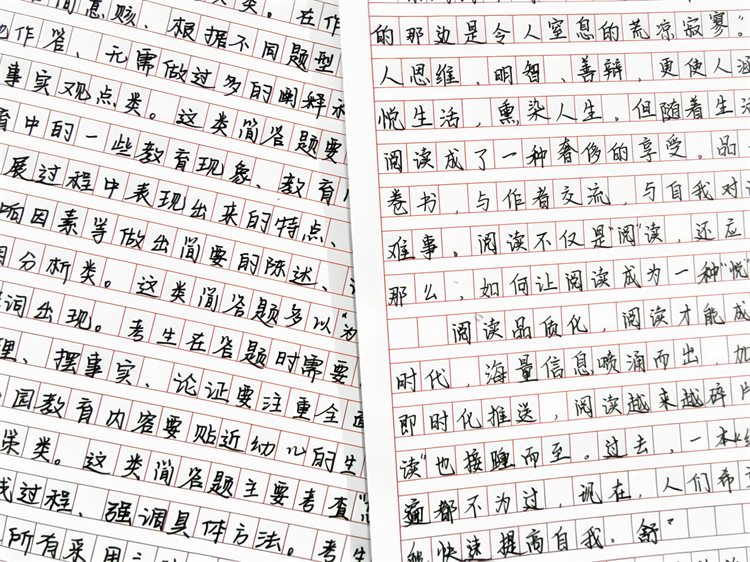 简意赅、根据不同题型
作答、无需做过多的阐释和
事实观点类。这类简答题要
育中的一些教育现象、教育
展过程中表现出来的特点、
响因素等做出简要的陈述、
分析类。这类简答题多以"为
词出现。考生在答题时需要
理、摆事实、论证要注重全面
园教育内容要贴近幼儿的生
策类。这类简答题主要考查
过程、强调具体方法。考生
所有采用
的那边是令人窒息的荒凉寂寥。
人思维、明智、善辩，更使人
悦生活，熏染人生。但随着生
阅读成了一种奢侈的享受。品一
卷书，与作者交流，与自我对
难事。阅读不仅是"阅"读，还应
那么，如何让阅读成为一种"悦"
阅读品质化，阅读才能成
时代，海量信息喷涌而出，加
即时化推送，阅读越来越碎片
读"也接踵而至。过去，一本
遍都不为过，现在，人们希
能快速提高自我。舒"